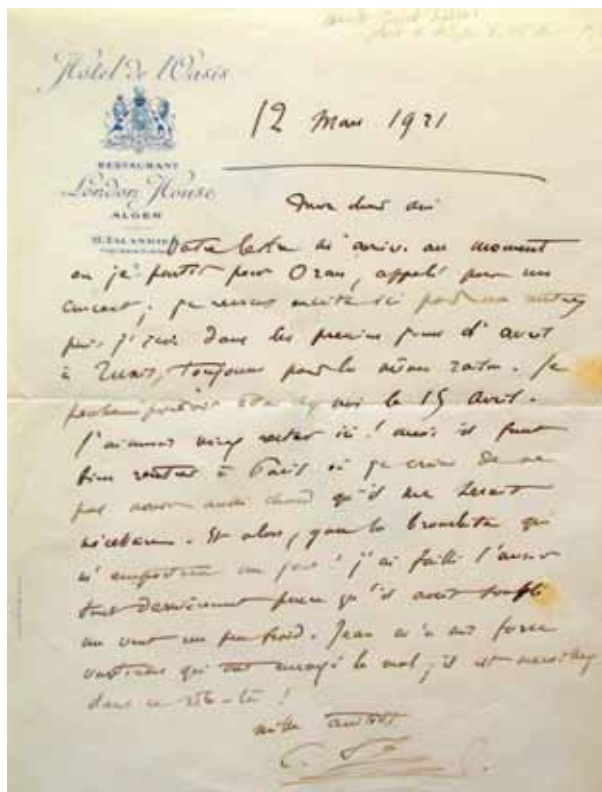 Hôtel de l'Oasis
RESTAURANT
London House
ALGER
12 Mars 1921
Mon cher ami
Votre lettre m'arrive au moment
où je partis pour Oran, appelé pour un
concert; je reviens ensuite ici pour un autre,
puis j'irai dans les premiers jours d'avril
à Tunis, toujours pour la même raison. Je
pense le 15 Avril.
J'aimerais rester ici! mais il faut
bien rentrer à Paris où je crains de ne
pas avoir aussi chaud qu'il me serait
nécessaire. Et alors, gare la bronchite qui
m'emportera un jour! j'ai failli l'avoir
tout dernièrement parce qu'il avait soufflé
un vent un peu froid. Jean m'a mis force
ventouses qui ont enrayé le mal; il est merveilleux
dans ce rôle-là!
mille amitiés
C.